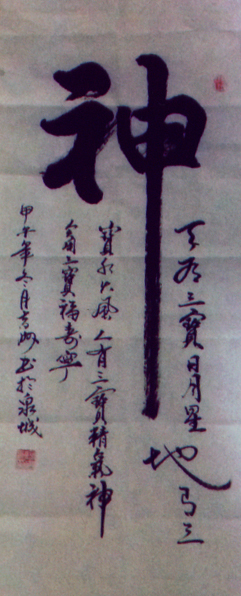 神
天有三寶日月星地有三
寶水火風人有三寶精氣神
用三寶福壽寧
甲午年冬月书於泉城